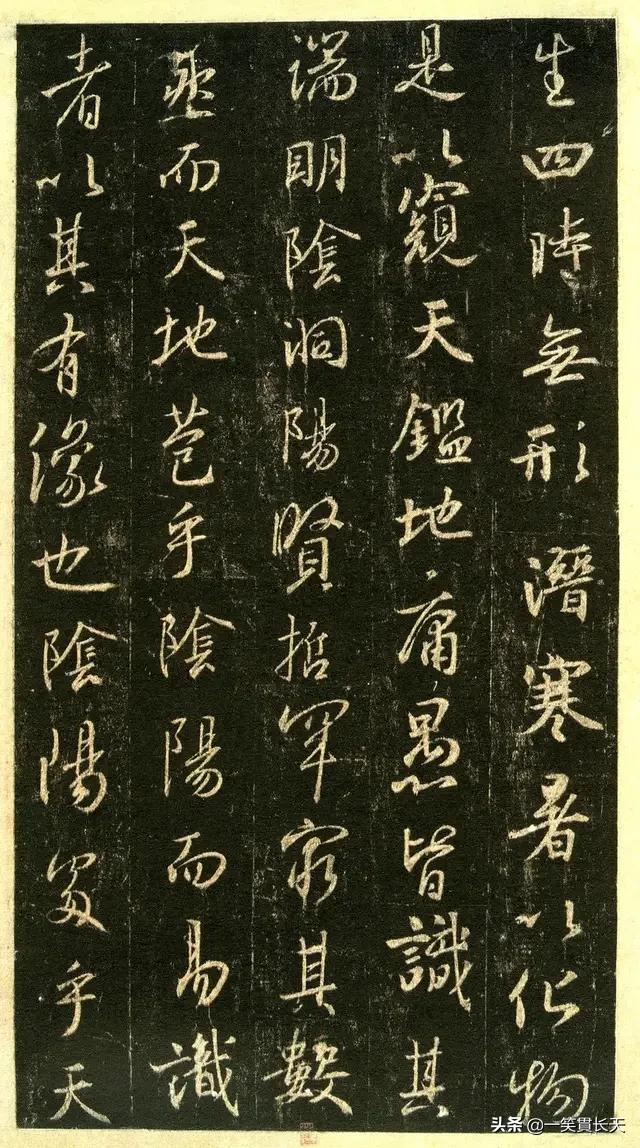 生四時無形潛寒暑以化物
是以窺天鑑地庸愚皆識其
端明陰洞陽賢哲罕窮其數
然而天地苞乎陰陽而易識
者以其有像也陰陽處乎天
头条 @一笑貫长天